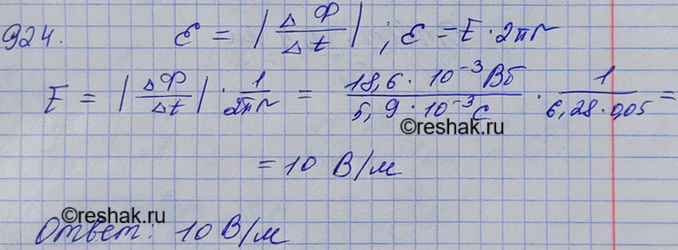 924. ℰ = |ΔΦ/Δt| ; ℰ = E · 2πr
E = |ΔΦ/Δt| · 1/2πr = 18,6 · 10⁻³ Вб/5,9 · 10⁻³ С · 1/6,28 · 0,05 =
©reshak.ru
= 10 В/м
©reshak.ru
Ответ: 10 В/м